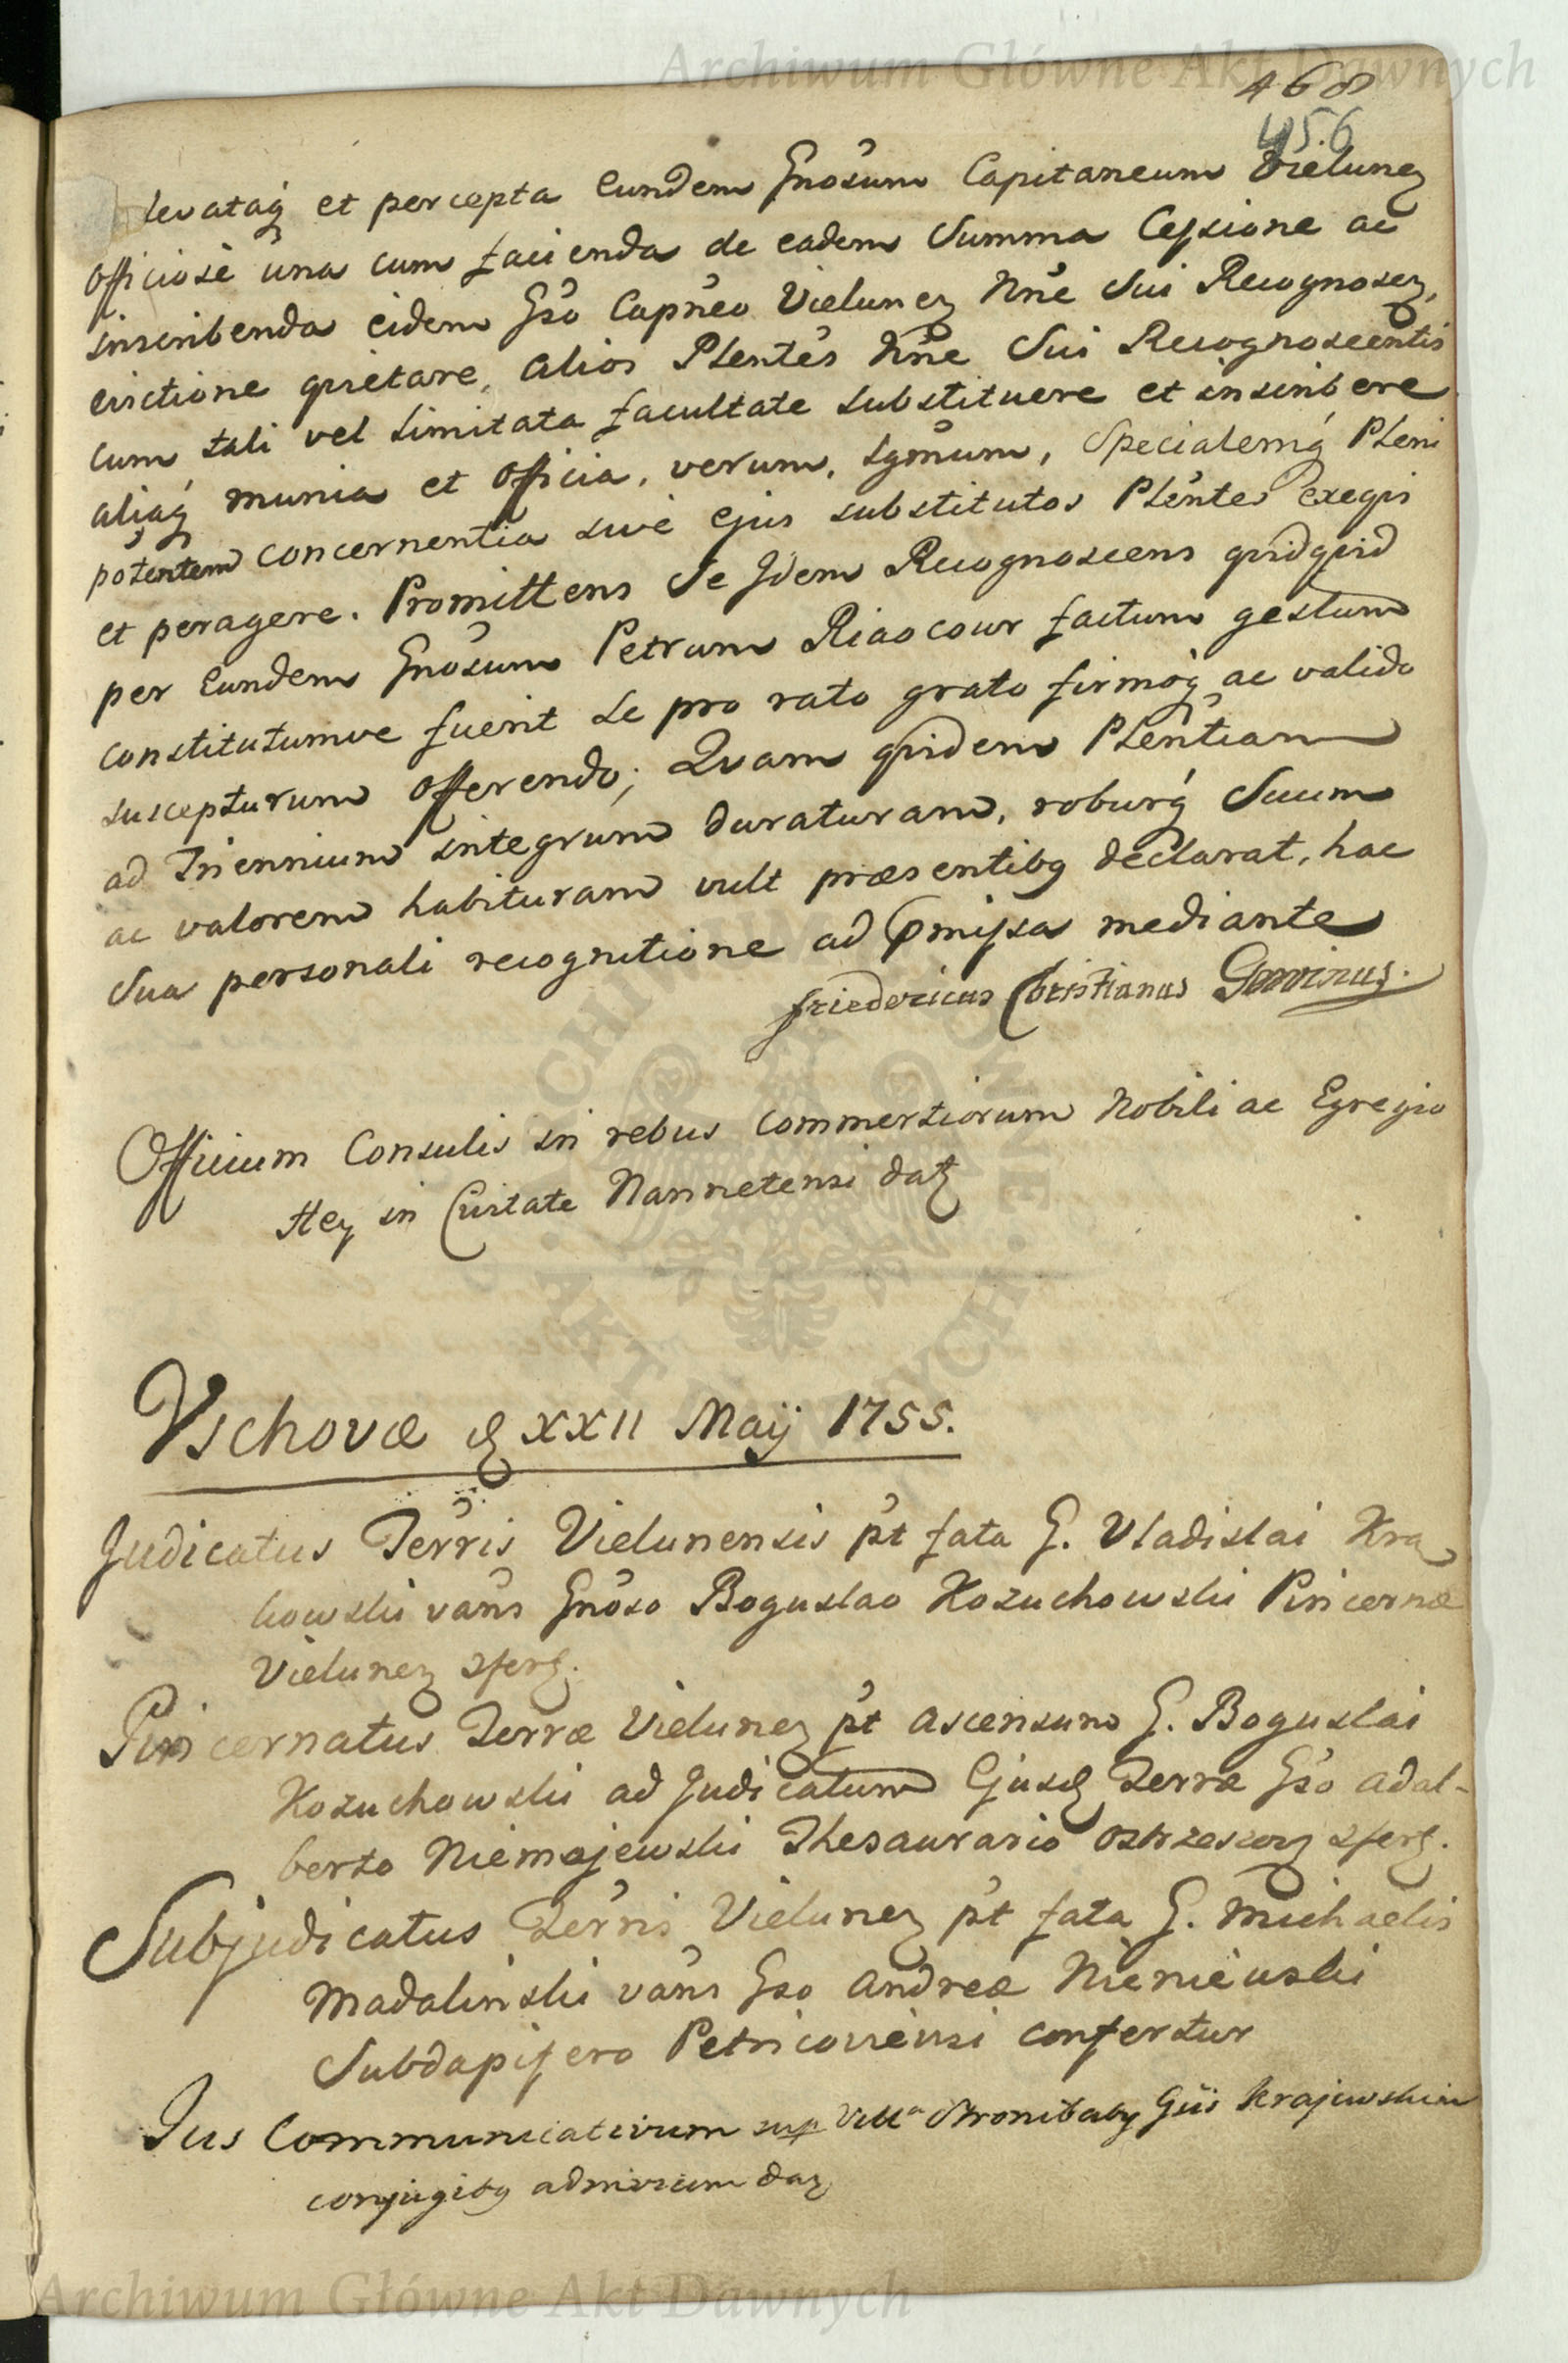 Archiwum Główne Akt Dawnych
468
456
levataq́ et percepta Eundem Gnosum Capitaneum Vielunez
Officiosè una cum facienda de eadem Summa Cessione ac
inscribenda eidem Gso Capneo Vielunez Nne Sui Recognosez,
evictione quietare, alios Plentes Nne Sui Recognoscentis
cum tali vel limitata facultate substituere et inscribere
aliaq́ munia et Officia, verum, lgmum, Specialemq́ Pleni
potentem concernentia sive ejus substitutos Plentes exequi
et peragere. Promittens Se Idem Recognoscens quidquid
per Eundem Gnosum Petrum Riaocour factum gestum
constitutumve fuerit se pro rato grato firmoq́ ac valido
suscepturum Offerendo; Quam quidem Plentiam
ad Triennium integrum duraturam, roburq́ Suum
ac valorem habituram vult præsentibq declarat, hac
Sua personali recognitione ad pmissa mediante
Friedericus Christianus
Officium Consulis in rebus Commertiorum Nobili ac Egregio
Hey in Civitate Nannetensi datz
Vschovæ d XXII Maij 1755.
Judicatus Terris Vielunensis pt fata G. Vladislai Kra
kowski vans Gnoso Boguslao Kozuchowski Pincernæ
Vielunez sfertz.
Pincernatus Terræ Vielunez pt ascensum G. Boguslai
Kozuchowski ad Judicatum Ejusd Terræ Gso Adal-
berto Niemojewski Thesaurario Ostrzeszoz sfertz.
Subjudicatus Terris Vielunez pt fata G. Michaelis
Madalinski vans Gso Andreæ Nieniewski
Subdapifero Petricoviensi confertur
Jus Communicativum sup Villa Stronibaby Gsis Krajewskim
conjugibq advnicum daz
Archiwum Główne Akt Dawnych